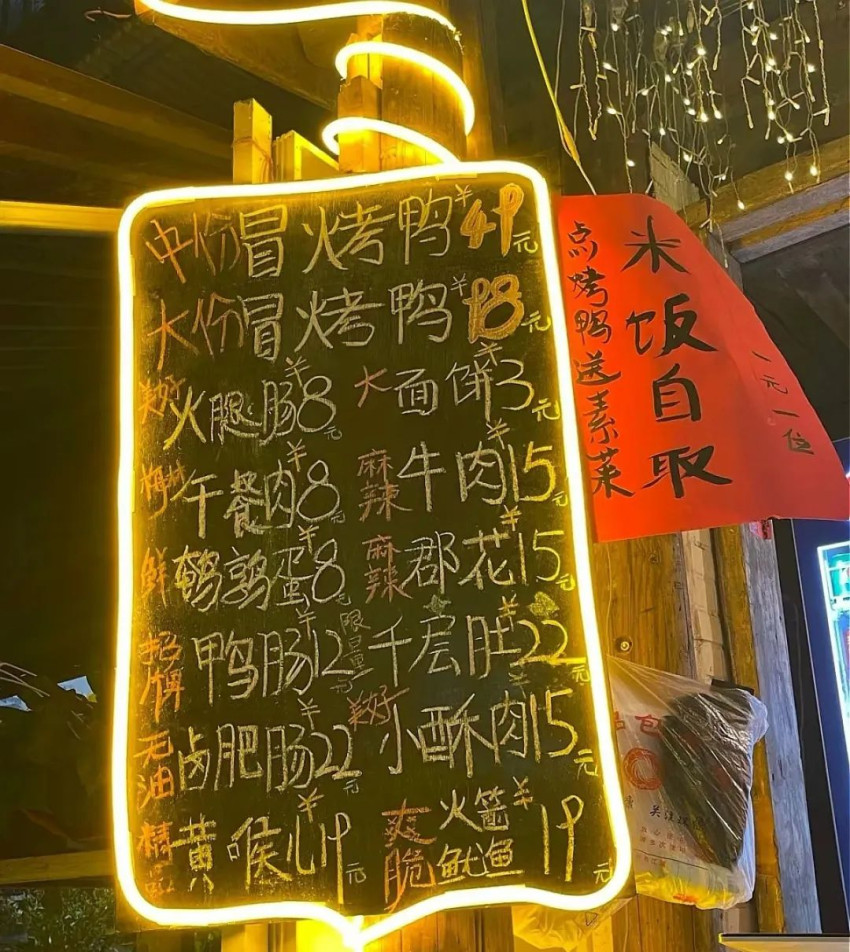 中份冒烤鸭¥49元
大份冒烤鸭¥98元
美好火腿肠¥8元 大面饼¥3元
梅林午餐肉¥8元 麻辣牛肉¥15元
鲜鹌鹑蛋¥8元 麻辣郡花¥15元
招牌鸭肠¥12元 限量千层肚¥22元
无油卤肥肠¥22元 美好小酥肉¥15元
精品黄喉¥19元 爽脆火箭鱿鱼¥19元
米饭自取
一元一位
点烤鸭送素菜